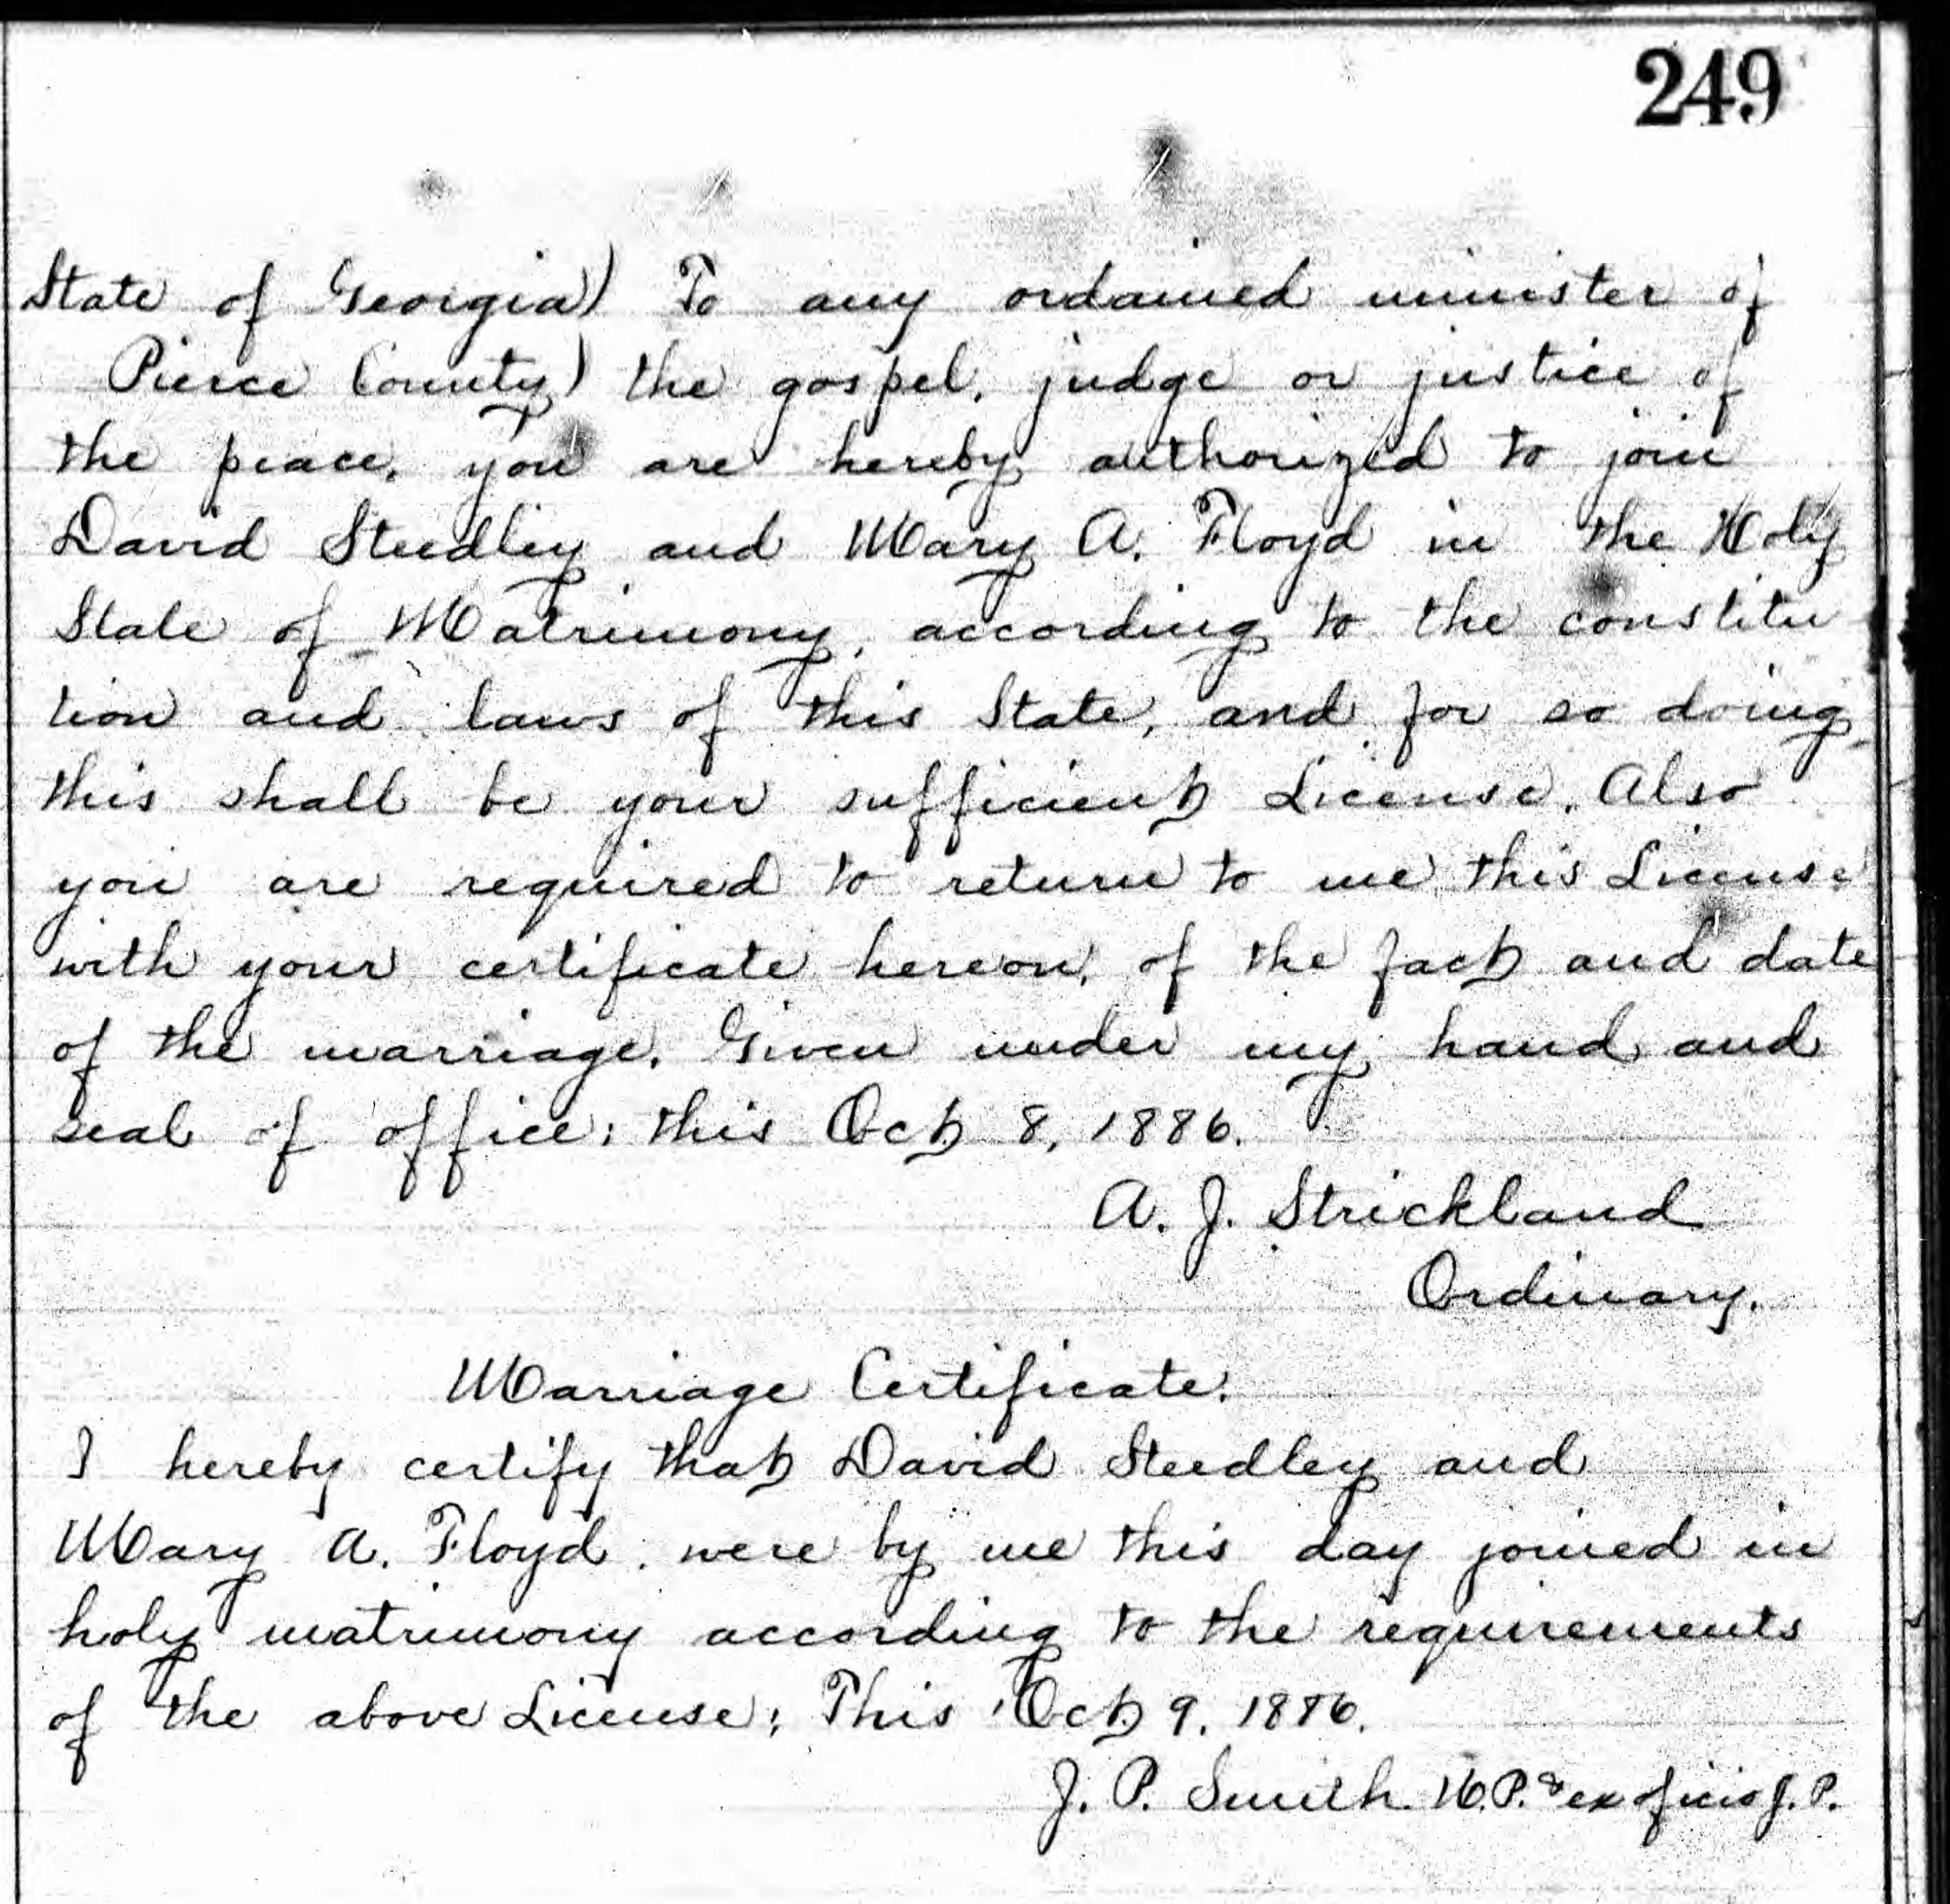 249
State of Georgia) To any ordained minister of
Pierce County) the gospel, judge or justice of
the peace, you are hereby authorized to join
David Steedley and Mary A. Floyd in the Holy
State of Matrimony, according to the constitu
tion and laws of this State, and for so doing
this shall be your sufficient License. Also
you are required to return to me this License
with your certificate hereon, of the fact and date
of the marriage. Given under my hand and
seal of office; this Oct 8, 1886.
A. J. Strickland
Ordinary.
Marriage Certificate.
I hereby certify that David Steedley and
Mary A. Floyd. were by me this day joined in
holy matrimony according to the requirements
of the above License; This Oct 9. 1886.
J. P. Smith N.P. & ex oficio J. P.